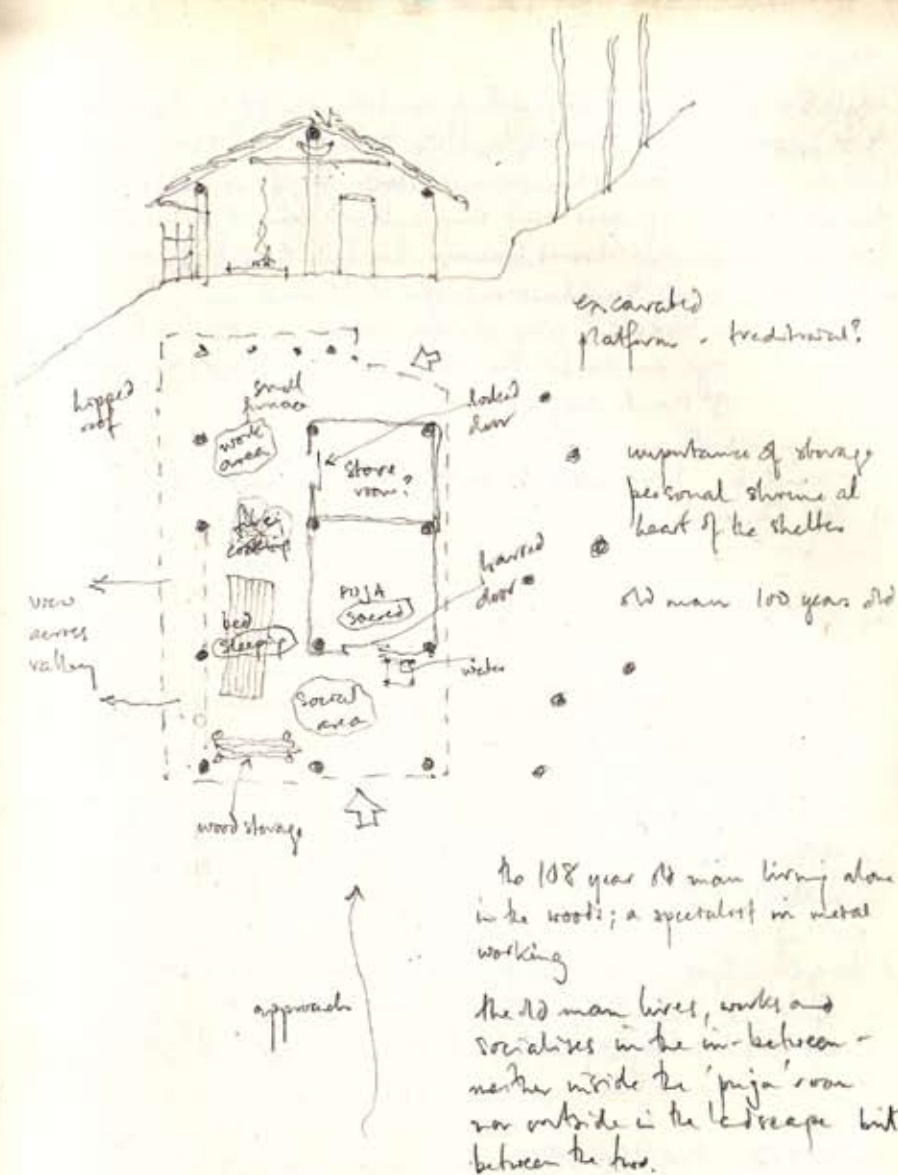 excavated
platform - traditional?
hipped
roof
small
furnace
work
area
locked
door
store
room?
importance of storage
personal shrine at
heart of the shelter
cooking
barred
door
PUJA
sacred
old man 100 years old
view
across
valley
bed
sleeping
water
social
area
wood storage
the 108 year old man living alone
in the woods; a specialist in metal
working
approach
the old man lives, works and
socialises in the in-between -
neither inside the 'puja' room
nor outside in the landscape but
between the two.